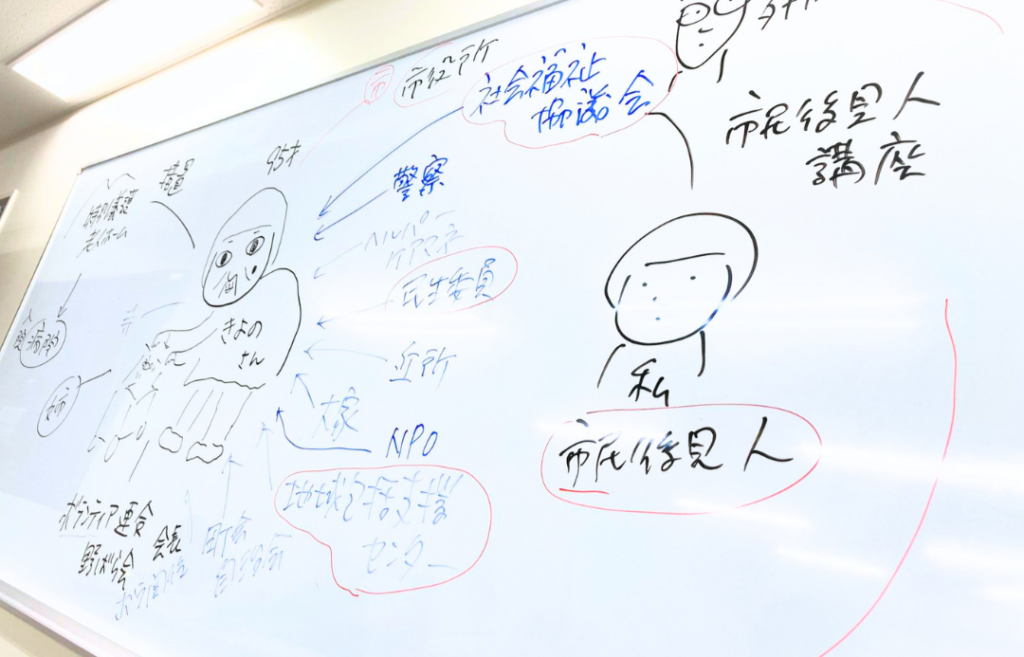 市
市役所
社会福祉
協議会
市民後見人
講座
95才
措置
特別養護
老人ホーム
警察
ヘルパー
ケアマネ
民生委員
きよの
さん
近所
大家
NPO
地域包括支援
センター
私
市民後見人
ボランティア連合
野ばら会 会長
町会
自治会